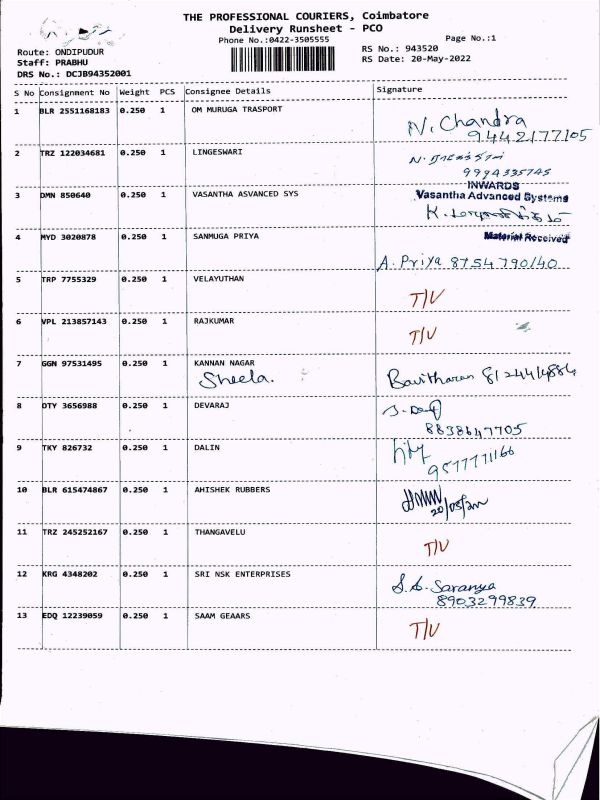 THE PROFESSIONAL COURIERS, Coimbatore
Delivery Runsheet - PCO
Phone No.:0422-3505555
Page No.:1
Route: ONDIPUDUR
RS No.: 943520
Staff: PRABHU
RS Date: 20-May-2022
DRS No.: DCJB94352001
S No Consignment No Weight PCS Consignee Details Signature
1 BLR 2551168183 0.250 1 OM MURUGA TRASPORT
N. Chandra
9442177105
2 TRZ 122034681 0.250 1 LINGESWARI
9994335745
INWARDS
3 DMN 850640 0.250 1 VASANTHA ASVANCED SYS Vasantha Advanced Systems
4 MYD 3020878 0.250 1 SANMUGA PRIYA Material Received
A. Priya 8754790140
5 TRP 7755329 0.250 1 VELAYUTHAN
T/V
6 VPL 213857143 0.250 1 RAJKUMAR
T/V
7 GGN 97531495 0.250 1 KANNAN NAGAR
Sheela. Bavitharan
8 DTY 3656988 0.250 1 DEVARAJ
8838647705
9 TKY 826732 0.250 1 DALIN
9577771166
10 BLR 615474867 0.250 1 AHISHEK RUBBERS
20/05/22
11 TRZ 245252167 0.250 1 THANGAVELU
T/V
12 KRG 4348202 0.250 1 SRI NSK ENTERPRISES
S.A. Saranya
8903299839
13 EDQ 12239059 0.250 1 SAAM GEAARS
T/V